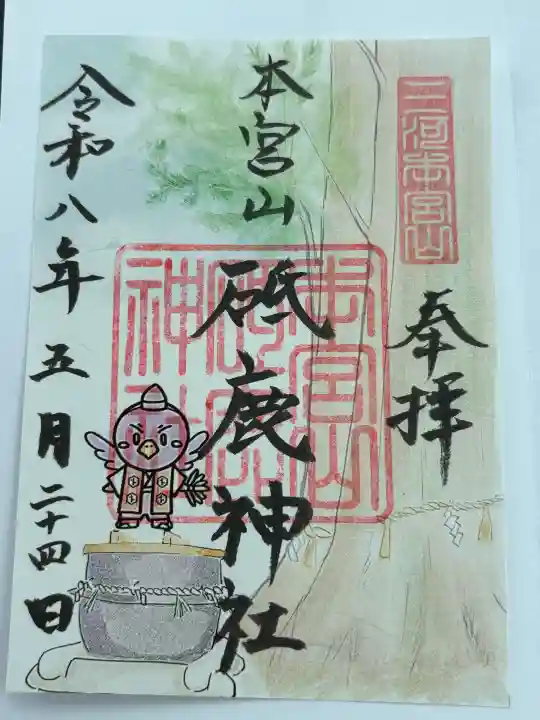 三河本宮山
奉拝
本宮山
砥鹿神社
本宮山
砥鹿
神社
令和八年五月二十四日